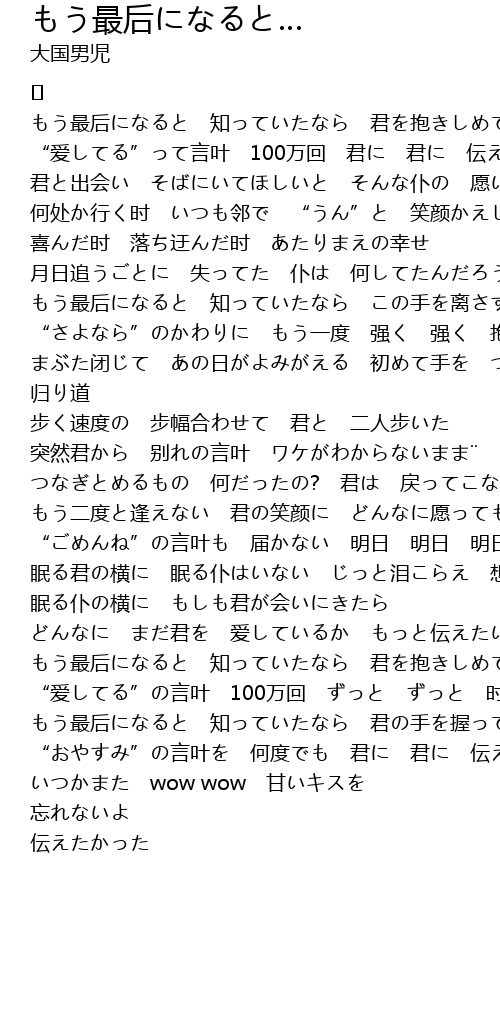 もう最后になると...
大国男児
[]
もう最后になると　知っていたなら　君を抱きしめて
“爱してる”って言叶　100万回　君に　君に　伝え
君と出会い　そばにいてほしいと　そんな仆の　愿い
何処か行く时　いつも邻で　“うん”と　笑颜かえし
喜んだ时　落ち迂んだ时　あたりまえの幸せ
月日追うごとに　失ってた　仆は　何してたんだろう
もう最后になると　知っていたなら　この手を离さず
“さよなら”のかわりに　もう一度　强く　强く　抱
まぶた闭じて　あの日がよみがえる　初めて手を　つ
归り道
步く速度の　步幅合わせて　君と　二人步いた
突然君から　别れの言叶　ワケがわからないまま¨
つなぎとめるもの　何だったの?　君は　戻ってこな
もう二度と逢えない　君の笑颜に　どんなに愿っても
“ごめんね”の言叶も　届かない　明日　明日　明日
眠る君の横に　眠る仆はいない　じっと泪こらえ　想
眠る仆の横に　もしも君が会いにきたら
どんなに　まだ君を　爱しているか　もっと伝えたい
もう最后になると　知っていたなら　君を抱きしめて
“爱してる”の言叶　100万回　ずっと　ずっと　时
もう最后になると　知っていたなら　君の手を握って
“おやすみ”の言叶を　何度でも　君に　君に　伝え
いつかまた　wow wow　甘いキスを
忘れないよ
伝えたかった